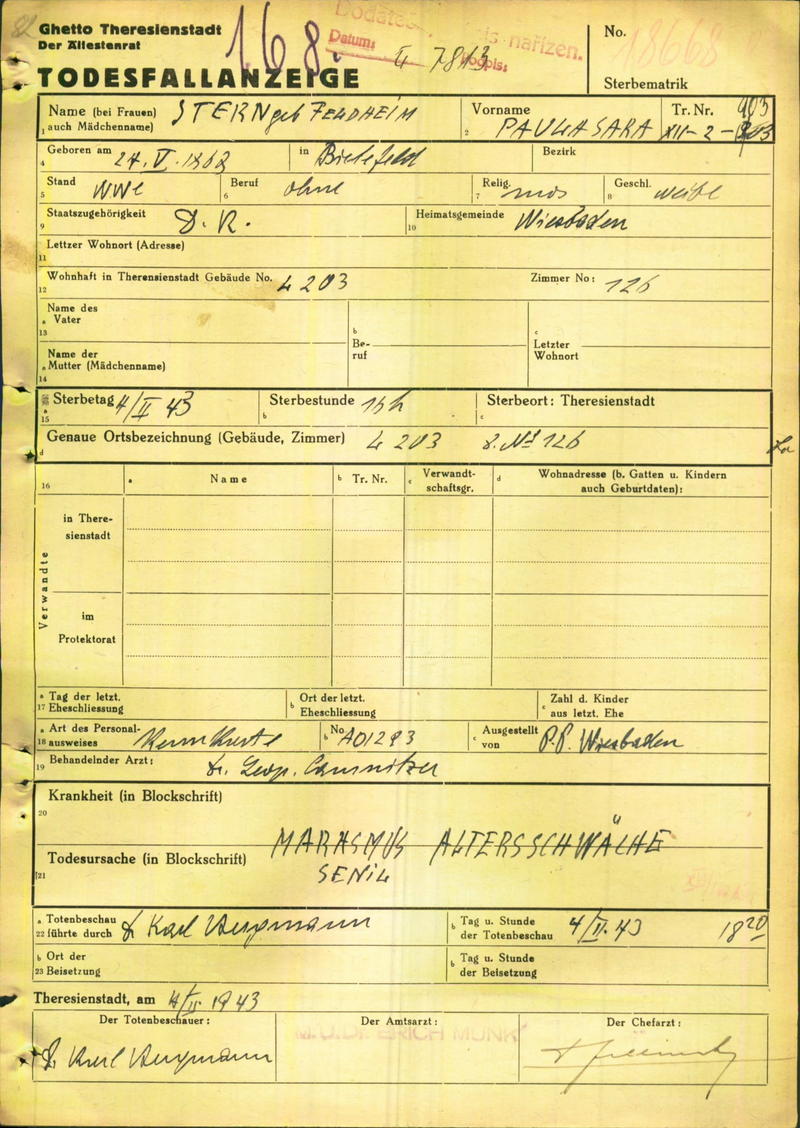 Ghetto Theresienstadt
Der Ältestenrat
TODESFALLANZEIGE
168
Datum:
No.
18668
Sterbematrik
Name (bei Frauen)
1 auch Mädchenname)
STERN geb FELDHEIM
Vorname
2 PAULA SARA
Tr. Nr. 903
XII-2-903
4 Geboren am 24. V. 1868 in Bielefeld Bezirk
5 Stand WWE
6 Beruf ohne
7 Relig. mos
8 Geschl. weibl
9 Staatszugehörigkeit D. R.
10 Heimatsgemeinde Wiesbaden
11 Lettzer Wohnort (Adresse)
12 Wohnhaft in Theresienstadt Gebäude No. L 203 Zimmer No: 126
Name des
a Vater
13
b Be-
ruf
c Letzter
Wohnort
Name der
a Mutter (Mädchenname)
14
a 15 Sterbetag 4/II 43
b Sterbestunde 15h
c Sterbeort: Theresienstadt
d Genaue Ortsbezeichnung (Gebäude, Zimmer) L 203 Z. No 126
16 a Name b Tr. Nr. c Verwandt-
schaftsgr. d Wohnadresse (b. Gatten u. Kindern
auch Geburtdaten):
Verwandte
in There-
sienstadt
im
Protektorat
a Tag der letzt.
17 Eheschliessung
b Ort der letzt.
Eheschliessung
c Zahl d. Kinder
aus letzt. Ehe
a Art des Personal-
18 ausweises Kennkarte
b No. A01293
c Ausgestellt
von P.P. Wiesbaden
19 Behandelnder Arzt: Dr. Leop.
Krankheit (in Blockschrift)
20
MARASMUS ALTERSSCHWÄCHE
Todesursache (in Blockschrift)
21
SENIL
a Totenbeschau
22 führte durch Dr Karl
b Tag u. Stunde
der Totenbeschau 4/II. 43 18 20
b Ort der
23 Beisetzung
b Tag u. Stunde
der Beisetzung
Theresienstadt, am 4/II. 1943
Der Totenbeschauer: Der Amtsarzt: Der Chefarzt:
Dr Karl
M.U.Dr. ERICH MUNK